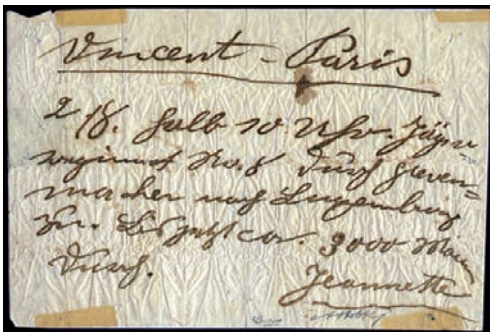 Vincent - Paris
2/8. halb 10 Uhr Jäger-
regiment No. 8 durch Greven-
macher nach Luxemburg
zu. Bis jetzt ca. 3000 Mann
durch.
Jeannette